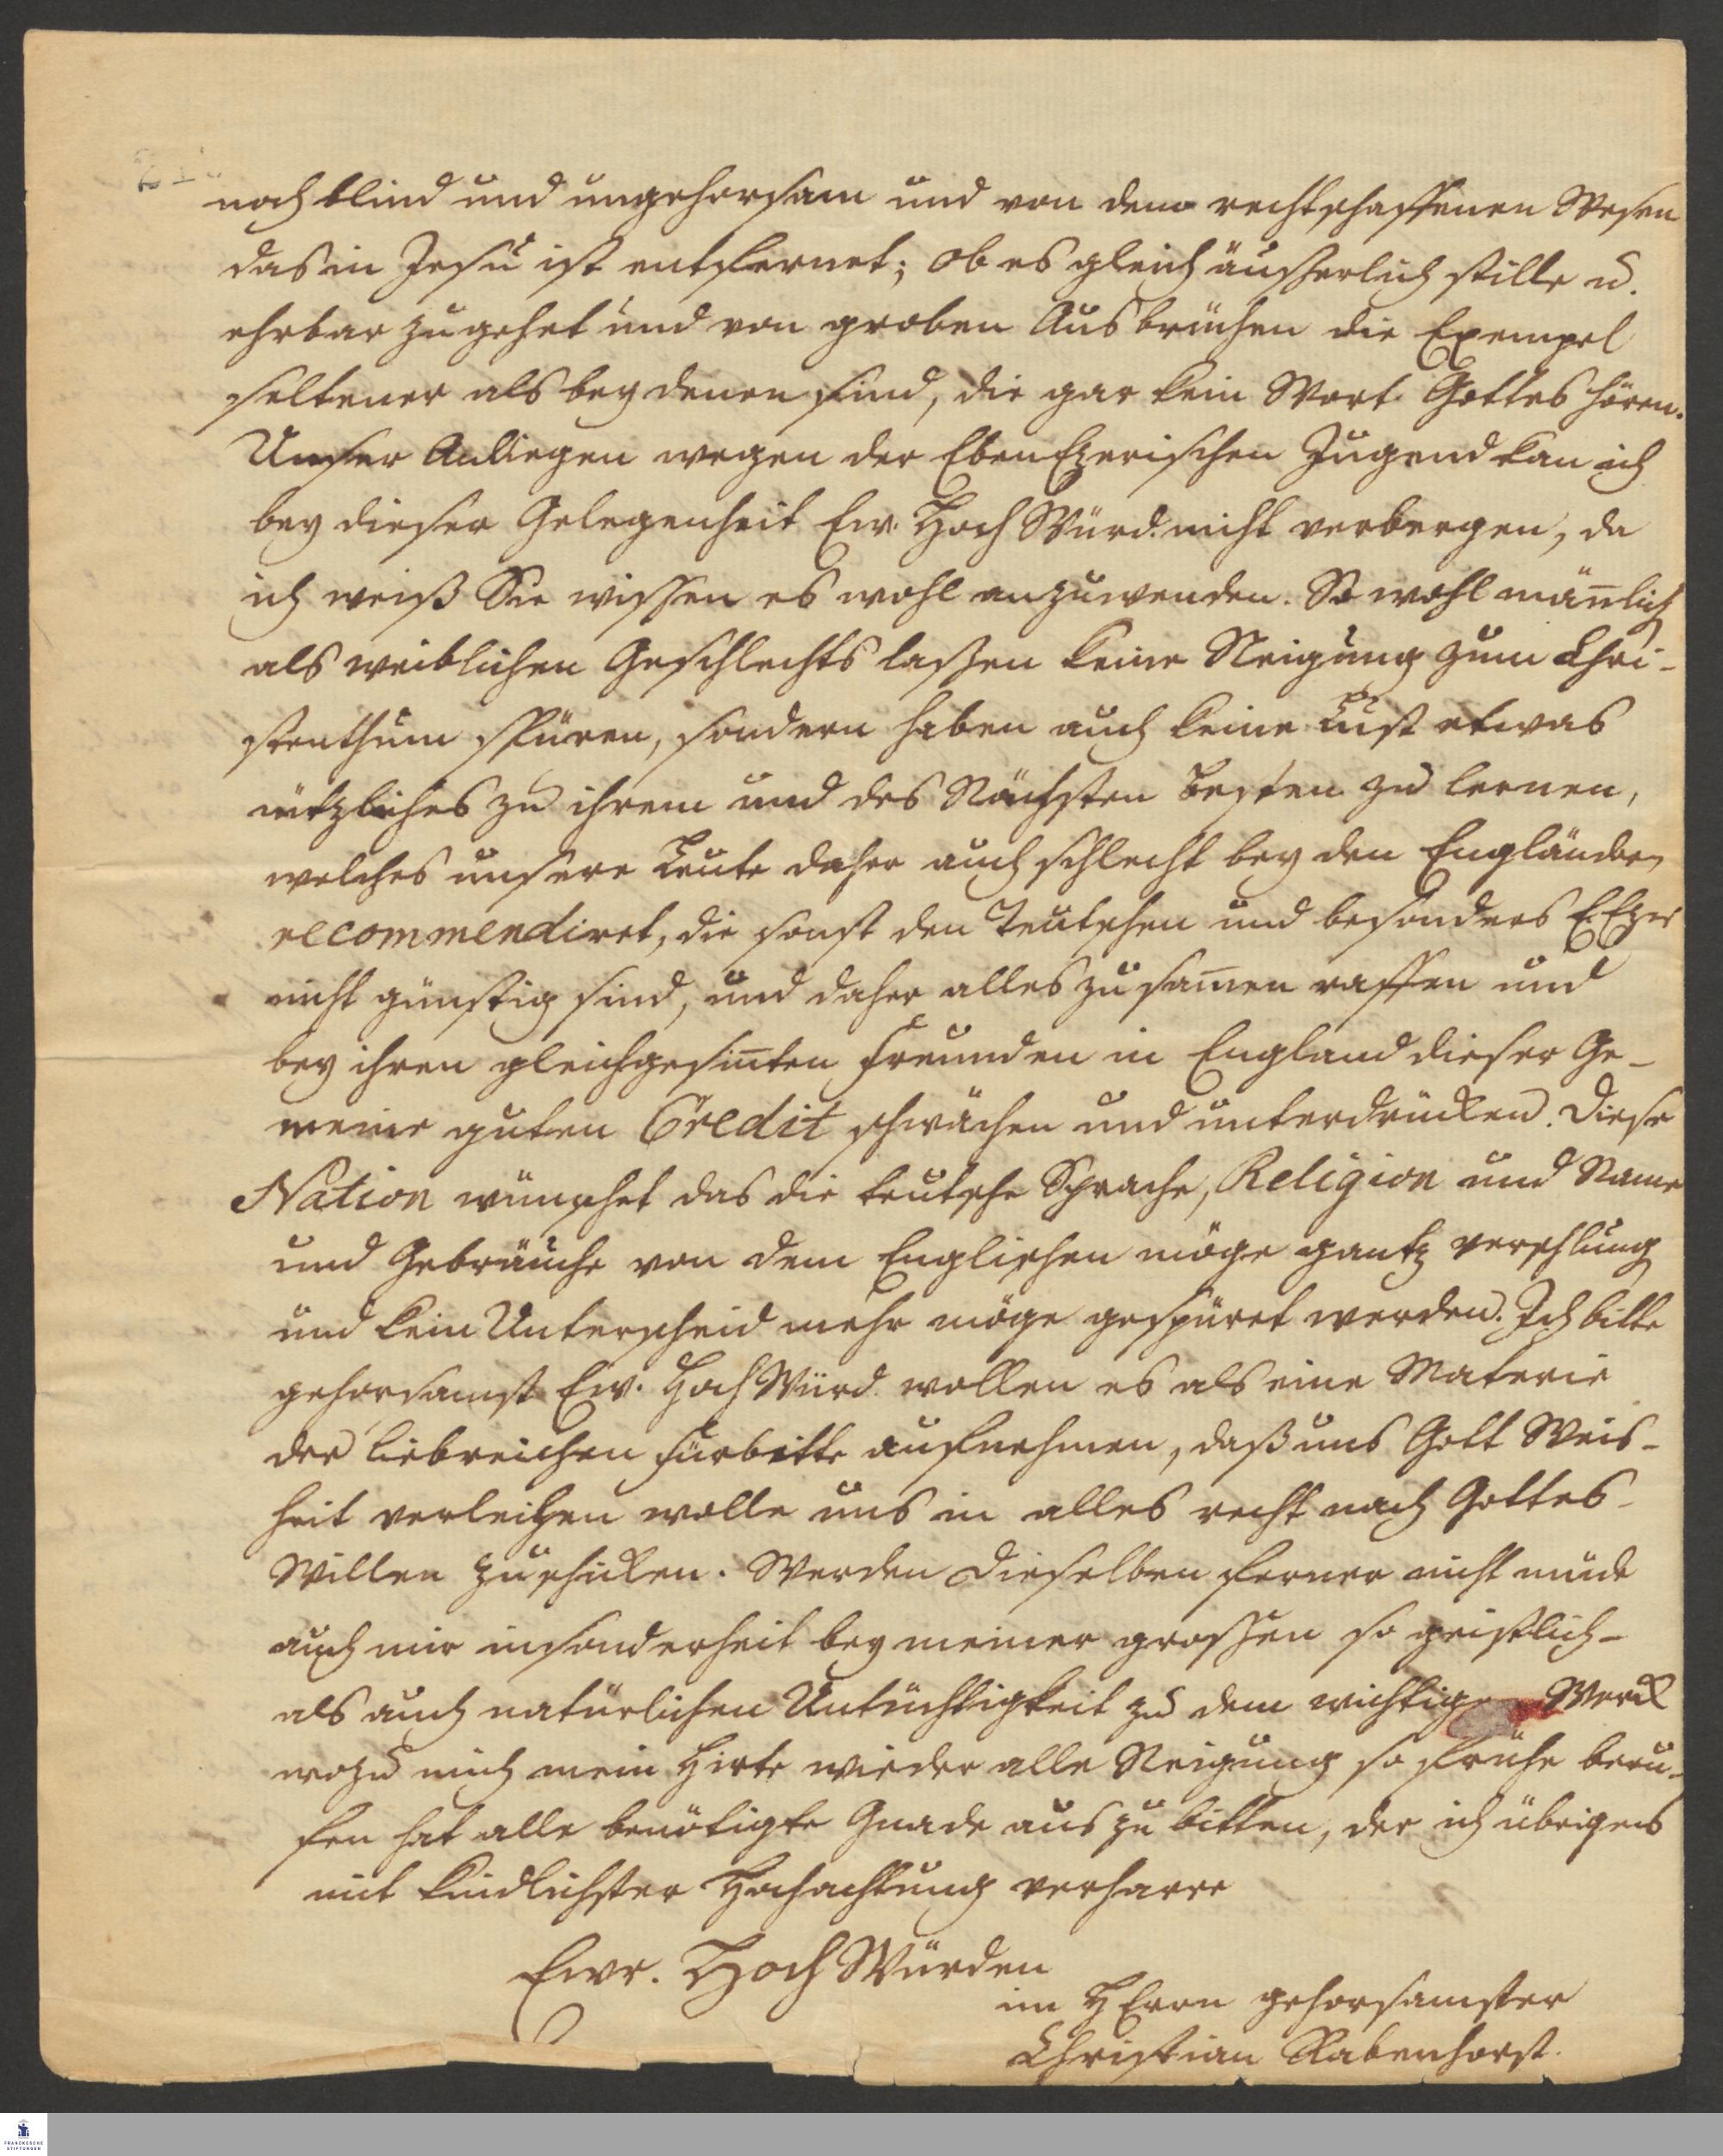 noch blind und ungehorsam und von dem rechtschaffenen Wesen
das in Jesu ist entfernet; ob es gleich äusserlich stille u.
ehrbar zugehet und von groben Ausbrüchen die Exempel
seltener als bey denen sind, die gar kein Wort Gottes hören.
Unser Anliegen wegen der EbenEzerischen Jugend kan ich
bey dieser Gelegenheit Ew. HochWürd. nicht verbergen, da
ich weiß Sie wissen es wohl anzuwenden. So wohl mañlich
als weiblichen Geschlechts laßen keine Neigung zum Chri-
stenthum spüren, sondern haben auch keine Lust etwas
nützliches zu ihrem und des Nächsten Besten zu lernen,
welches unsere Leute daher auch schlecht bey den Engländern
recommendiret, die sonst den Teutschen und besonders E.Ezer
nicht günstig sind, und daher alles zusam̃en raffen und
bey ihren gleichgesiñten Freunden in England dieser Ge-
meine guten Credit schwächen und unterdrücken. Diese
Nation wünschet das die teutsche Sprache, Religion und Name
und Gebräuche von dem Englischen möge gantz verschlung
und kein Unterscheid mehr möge gespüret werden. Ich bitte
gehorsamst Ew. HochWürd. wollen es als eine Materie
der liebreichen Fürbitte aufnehmen, daß uns Gott Weis-
heit verleihen wolle uns in alles recht nach Gottes
Willen zu schicken. Werden Dieselben ferner nicht müde
auch mir insonderheit bey meiner grossen so geistlich-
als auch natürlichen Untüchtigkeit zu dem wichtigen Werck
wozu mich mein Hirte wieder alle Neigung so frühe beru-
fen hat alle benötigte Gnade aus zu bitten, der ich übrigens
mit kindlichster Hochachtung verharre
Ewr. HochWürden
im HErrn gehorsamster
Christian Rabenhorst.
FRANCKESCHE
STIFTUNGEN